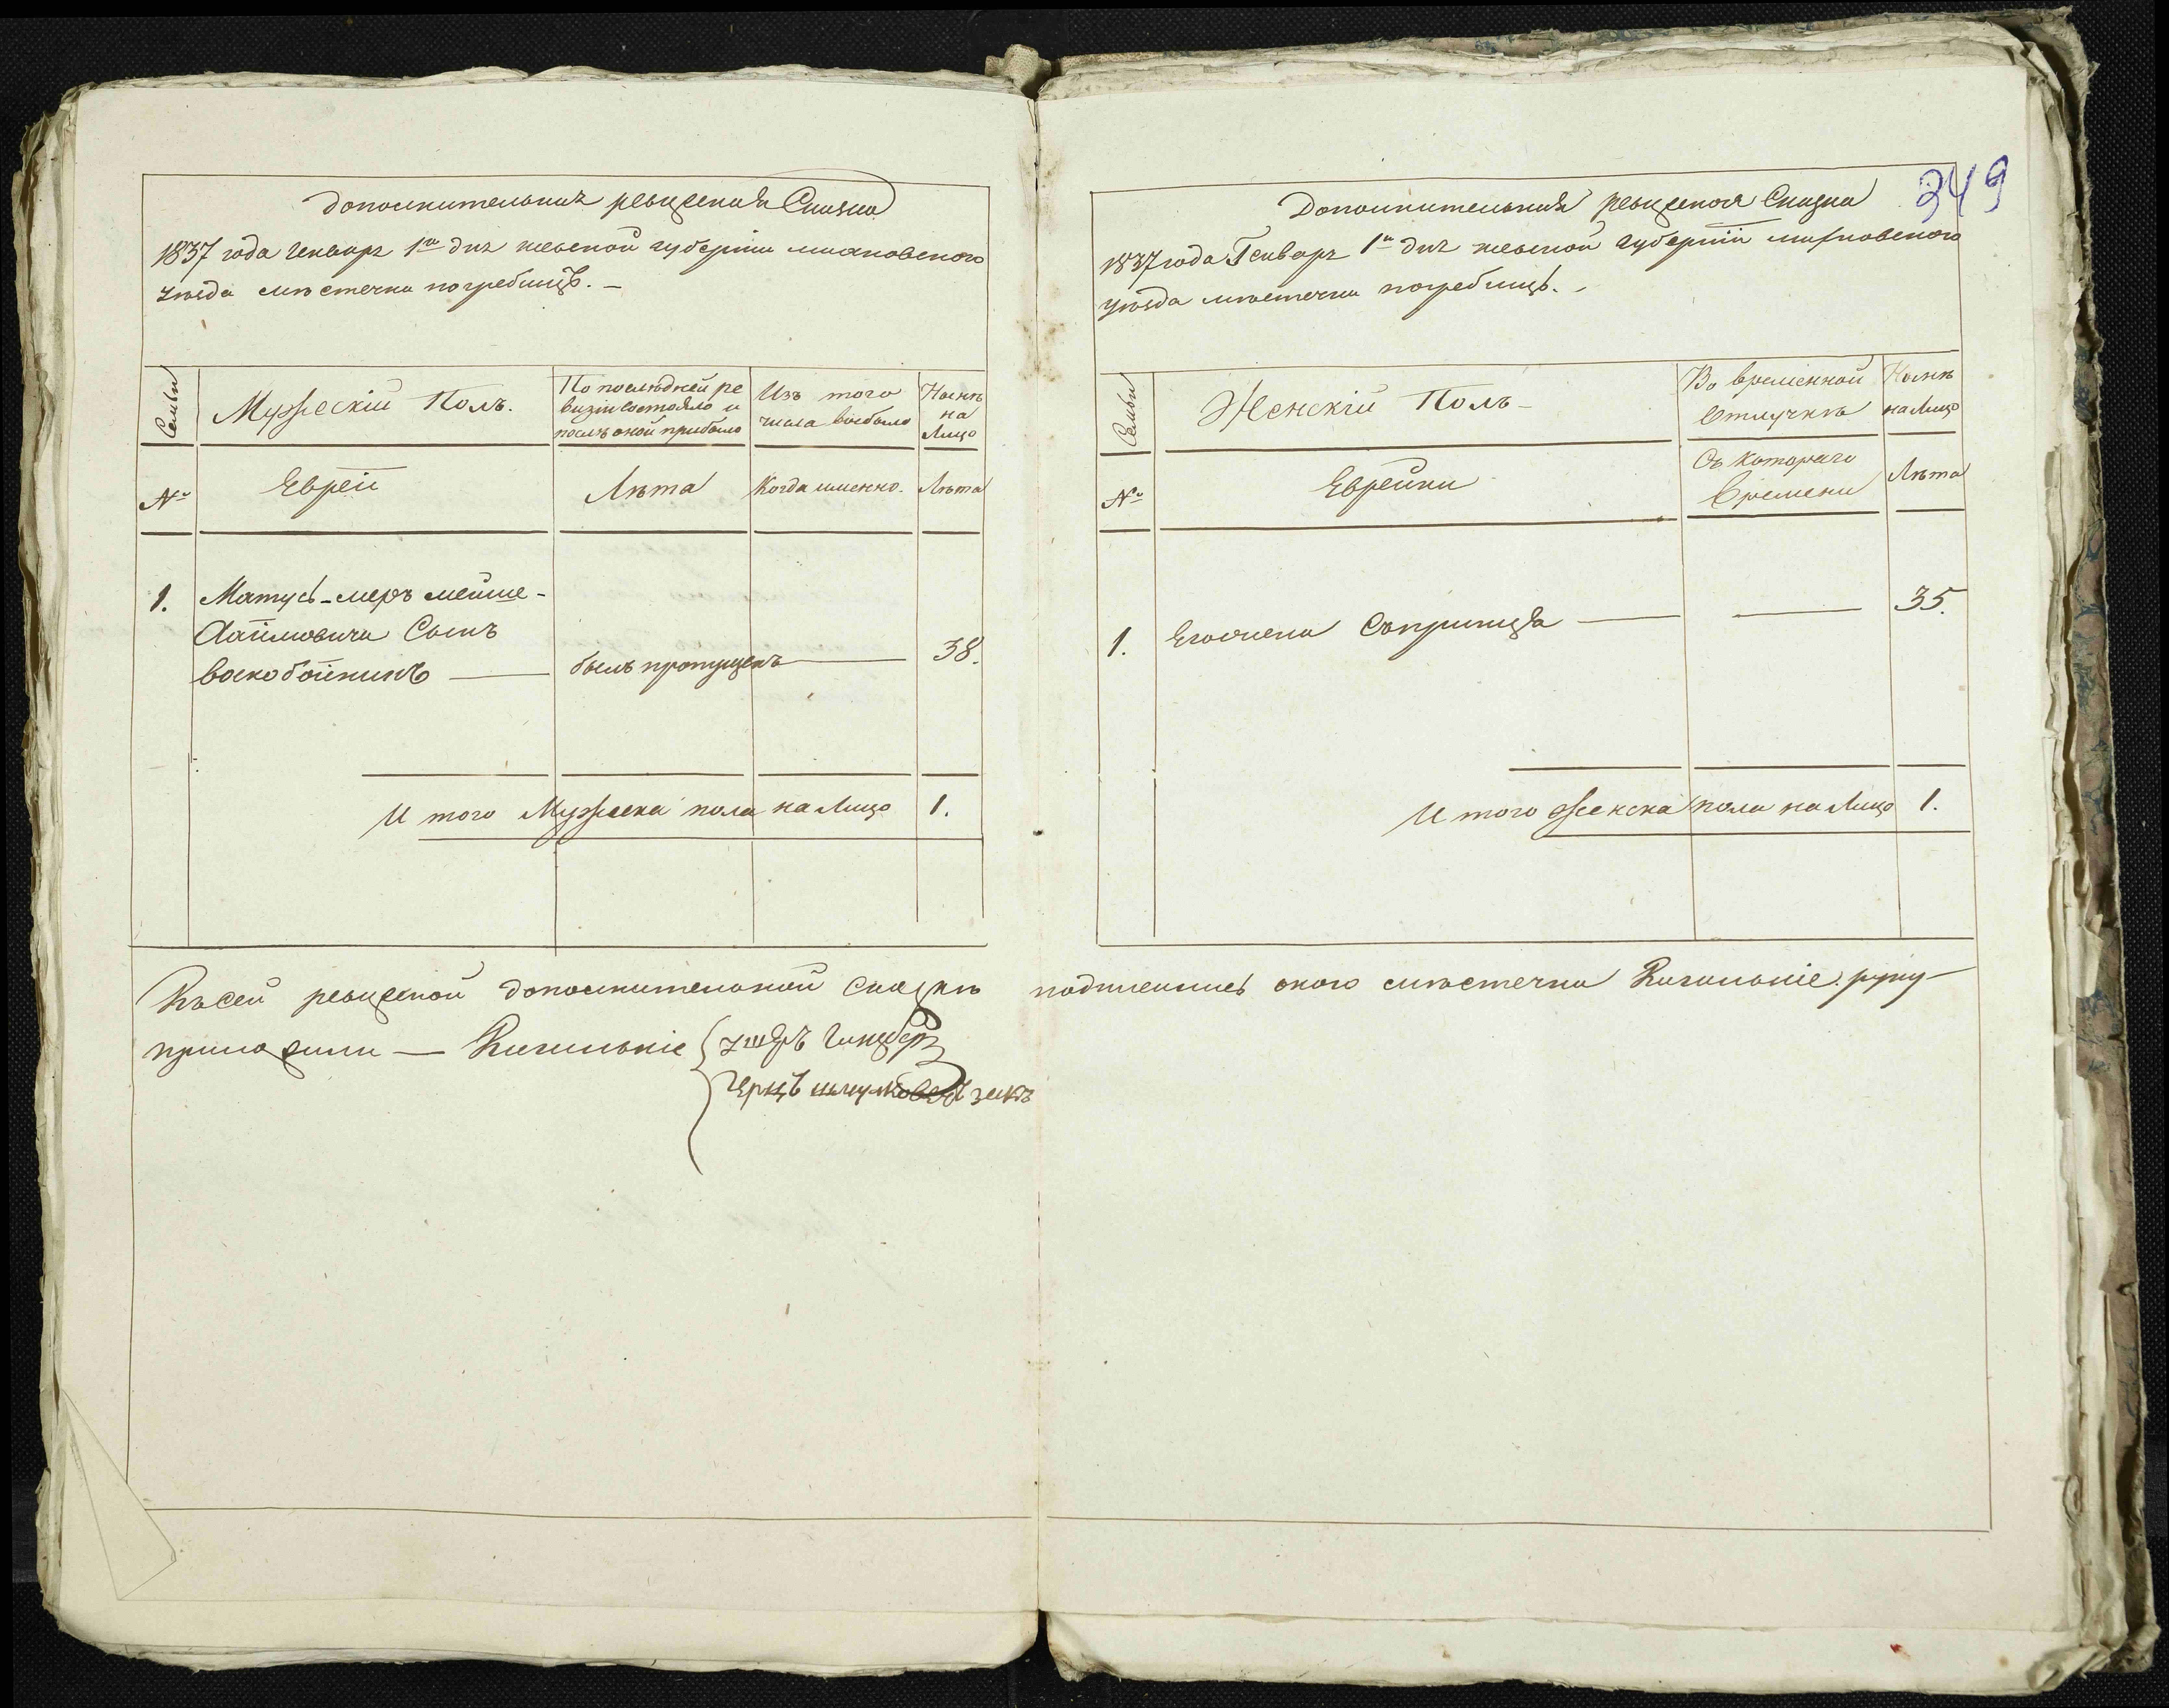 Дополнительная ревизская Сказка
1837 года генваря 1го дня киевской губернии махновского
уезда местечка погребищъ. –
Семьи
Мужескій Полъ.
По последней ре
визіи состояло и
после оной прибыло
Изъ того
числа выбыло
Ныне
на
Лицо
№
Евреи
Лета
Когда именно.
Лета
1.
Матусь-меръ мейше-
Хаймовича Сынъ
воскобойникъ —
былъ пропущенъ —
38.
И того Мужеска пола на Лицо 1.
349
Дополнительная ревизская Сказка
1837 года Генваря 1го дня киевской губерніи махновского
уезда местечка погребищъ. –
Семьи
Женскій Полъ –
Во временной
Отлучке
Ныне
на Лицо
№
Еврейки
Съ Котораго
Времени
Лета
1.
Его жена Сприндза —
—
35.
И того Женска пола на Лицо 1.
Къ сей ревизской дополнительной сказке подписались оного местечка Кагальніе. руку –
приложили — Кагальніе